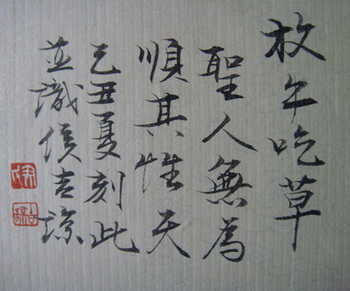 放牛吃草
聖人無為
順其性天
己丑夏刻此
並識侯吉諒